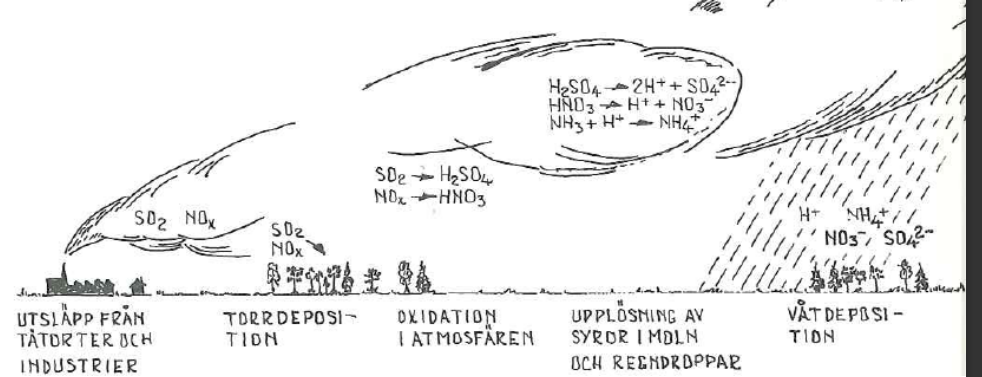 H₂SO₄ → 2H⁺ + SO₄²⁻
HNO₃ → H⁺ + NO₃⁻
NH₃ + H⁺ → NH₄⁺
SO₂ → H₂SO₄
NOₓ → HNO₃
SO₂ NOₓ
SO₂
NOₓ
H⁺ NH₄⁺
NO₃⁻, SO₄²⁻
UTSLÄPP FRÅN
TÄTORTER OCH
INDUSTRIER
TORRDEPOSI-
TION
OXIDATION
I ATMOSFÄREN
UPPLÖSNING AV
SYROR I MOLN
OCH REGNDROPPAR
VÅTDEPOSI-
TION